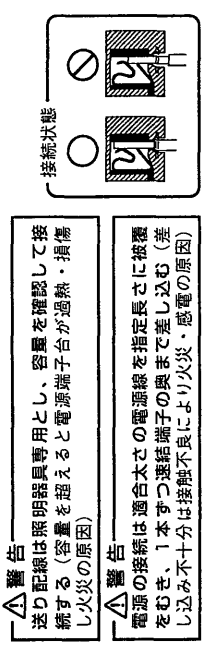 警告
送り配線は照明器具専用とし、容量を確認して接
続する（容量を超えると電源端子台が過熱・損傷
し火災の原因）
警告
電源の接続は適合太さの電源線を指定長さに被覆
をむき、1本ずつ速結端子の奥まで差し込む（差
し込み不十分は接触不良により火災・感電の原因）
接続状態